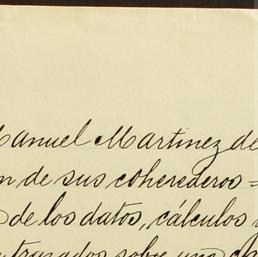 Manuel Martinez de
n de sus coherederos =
de los datos, cálculos
trazados sobre una